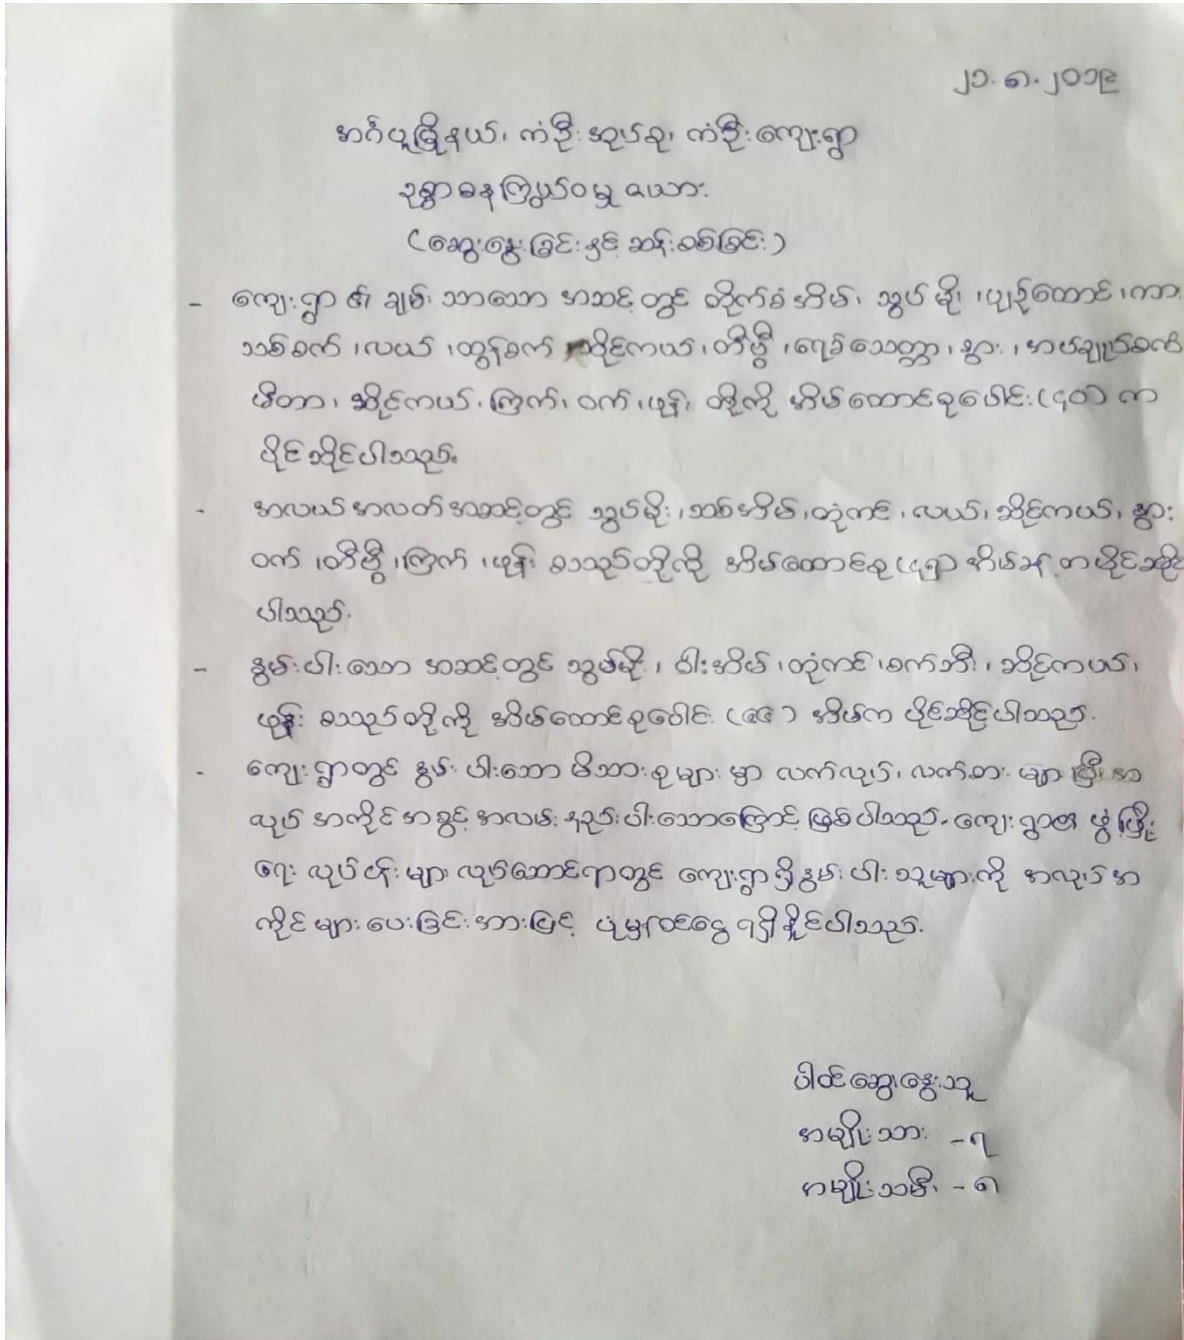 ၂၁. ၈. ၂၀၁၉
အင်္ဂပူမြို့နယ်၊ ကံဦးအုပ်စု၊ ကံဦးကျေးရွာ
ဥစ္စာဓနကြွယ်ဝမှုဇယား
(ဆွေးနွေးခြင်းနှင့် ဆန်းစစ်ခြင်း)
- ကျေးရွာ၏ ချမ်းသာသော အဆင့်တွင် တိုက်ခံအိမ်၊ သွပ်မိုး၊ ပျဉ်ထောင်၊ ကား
သစ်စက်၊ လယ်၊ ထွန်စက်၊ ဆိုင်ကယ်၊ တီဗွီ၊ ရေခဲသေတ္တာ၊ နွား၊ အပ်ချုပ်စက်
မီတာ၊ ဆိုင်ကယ်၊ ကြက်၊ ဝက်၊ ဖုန်း တို့ကို အိမ်ထောင်စုပေါင်း (၄၀) က
ပိုင်ဆိုင်ပါသည်။
- အလယ်အလတ်အဆင့်တွင် သွပ်မိုး၊ သစ်အိမ်၊ တုံကင်၊ လယ်၊ ဆိုင်ကယ်၊ နွား
ဝက်၊ တီဗွီ၊ ကြက်၊ ဖုန်း စသည်တို့ကို အိမ်ထောင်စု ပိုင်ဆိုင်
ပါသည်။
- နွမ်းပါးသော အဆင့်တွင် သွပ်မိုး၊ ဝါးအိမ်၊ တုံကင်၊ စက်ဘီး၊ ဆိုင်ကယ်၊
ဖုန်း စသည်တို့ကို အိမ်ထောင်စုပေါင်း (၉၄) အိမ်က ပိုင်ဆိုင်ပါသည်။
- ကျေးရွာတွင် နွမ်းပါးသော မိသားစုများမှာ လက်လုပ်၊ လက်စားများပြီး အ
လုပ်အကိုင်အခွင့်အလမ်းနည်းပါးသောကြောင့် ဖြစ်ပါသည်။ ကျေးရွာ၏ ဖွံ့ဖြိုး
ရေး လုပ်ငန်းများ လုပ်ဆောင်ရာတွင် ကျေးရွာရှိ နွမ်းပါးသူများကို အလုပ်အ
ကိုင်များပေးခြင်းအားဖြင့် ပုံမှန်ဝင်ငွေ ရရှိနိုင်ပါသည်။
ပါဝင်ဆွေးနွေးသူ
အမျိုးသား -၇
အမျိုးသမီး - ၈